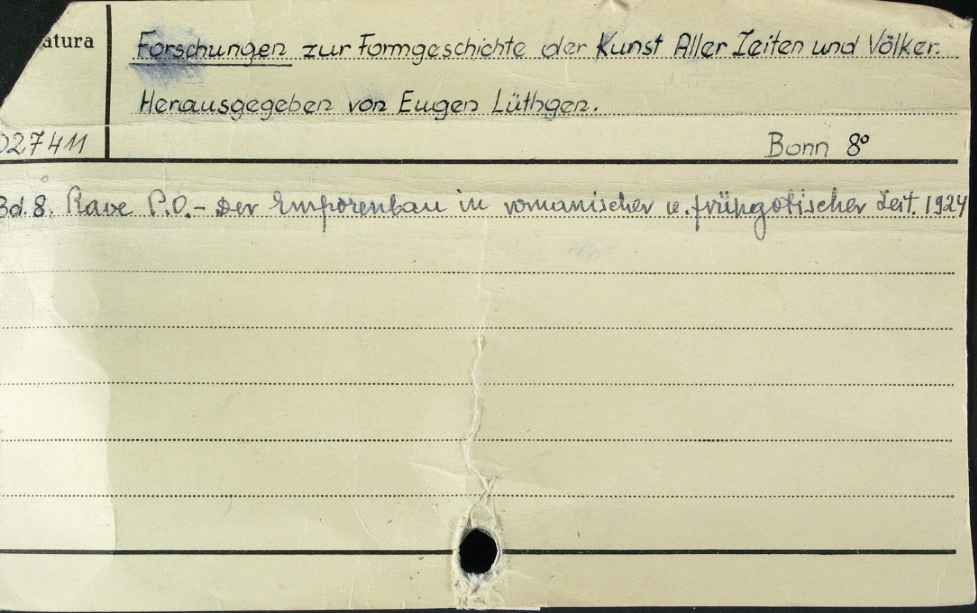 atura
Forschungen zur Formgeschichte der Kunst Aller Zeiten und Völker.
Herausgegeben von Eugen Lüthgen.
027411
Bonn 8°
Bd. 8. Rave P.O. - Der Emporenbau in romanischer u. frühgotischer Zeit. 1924